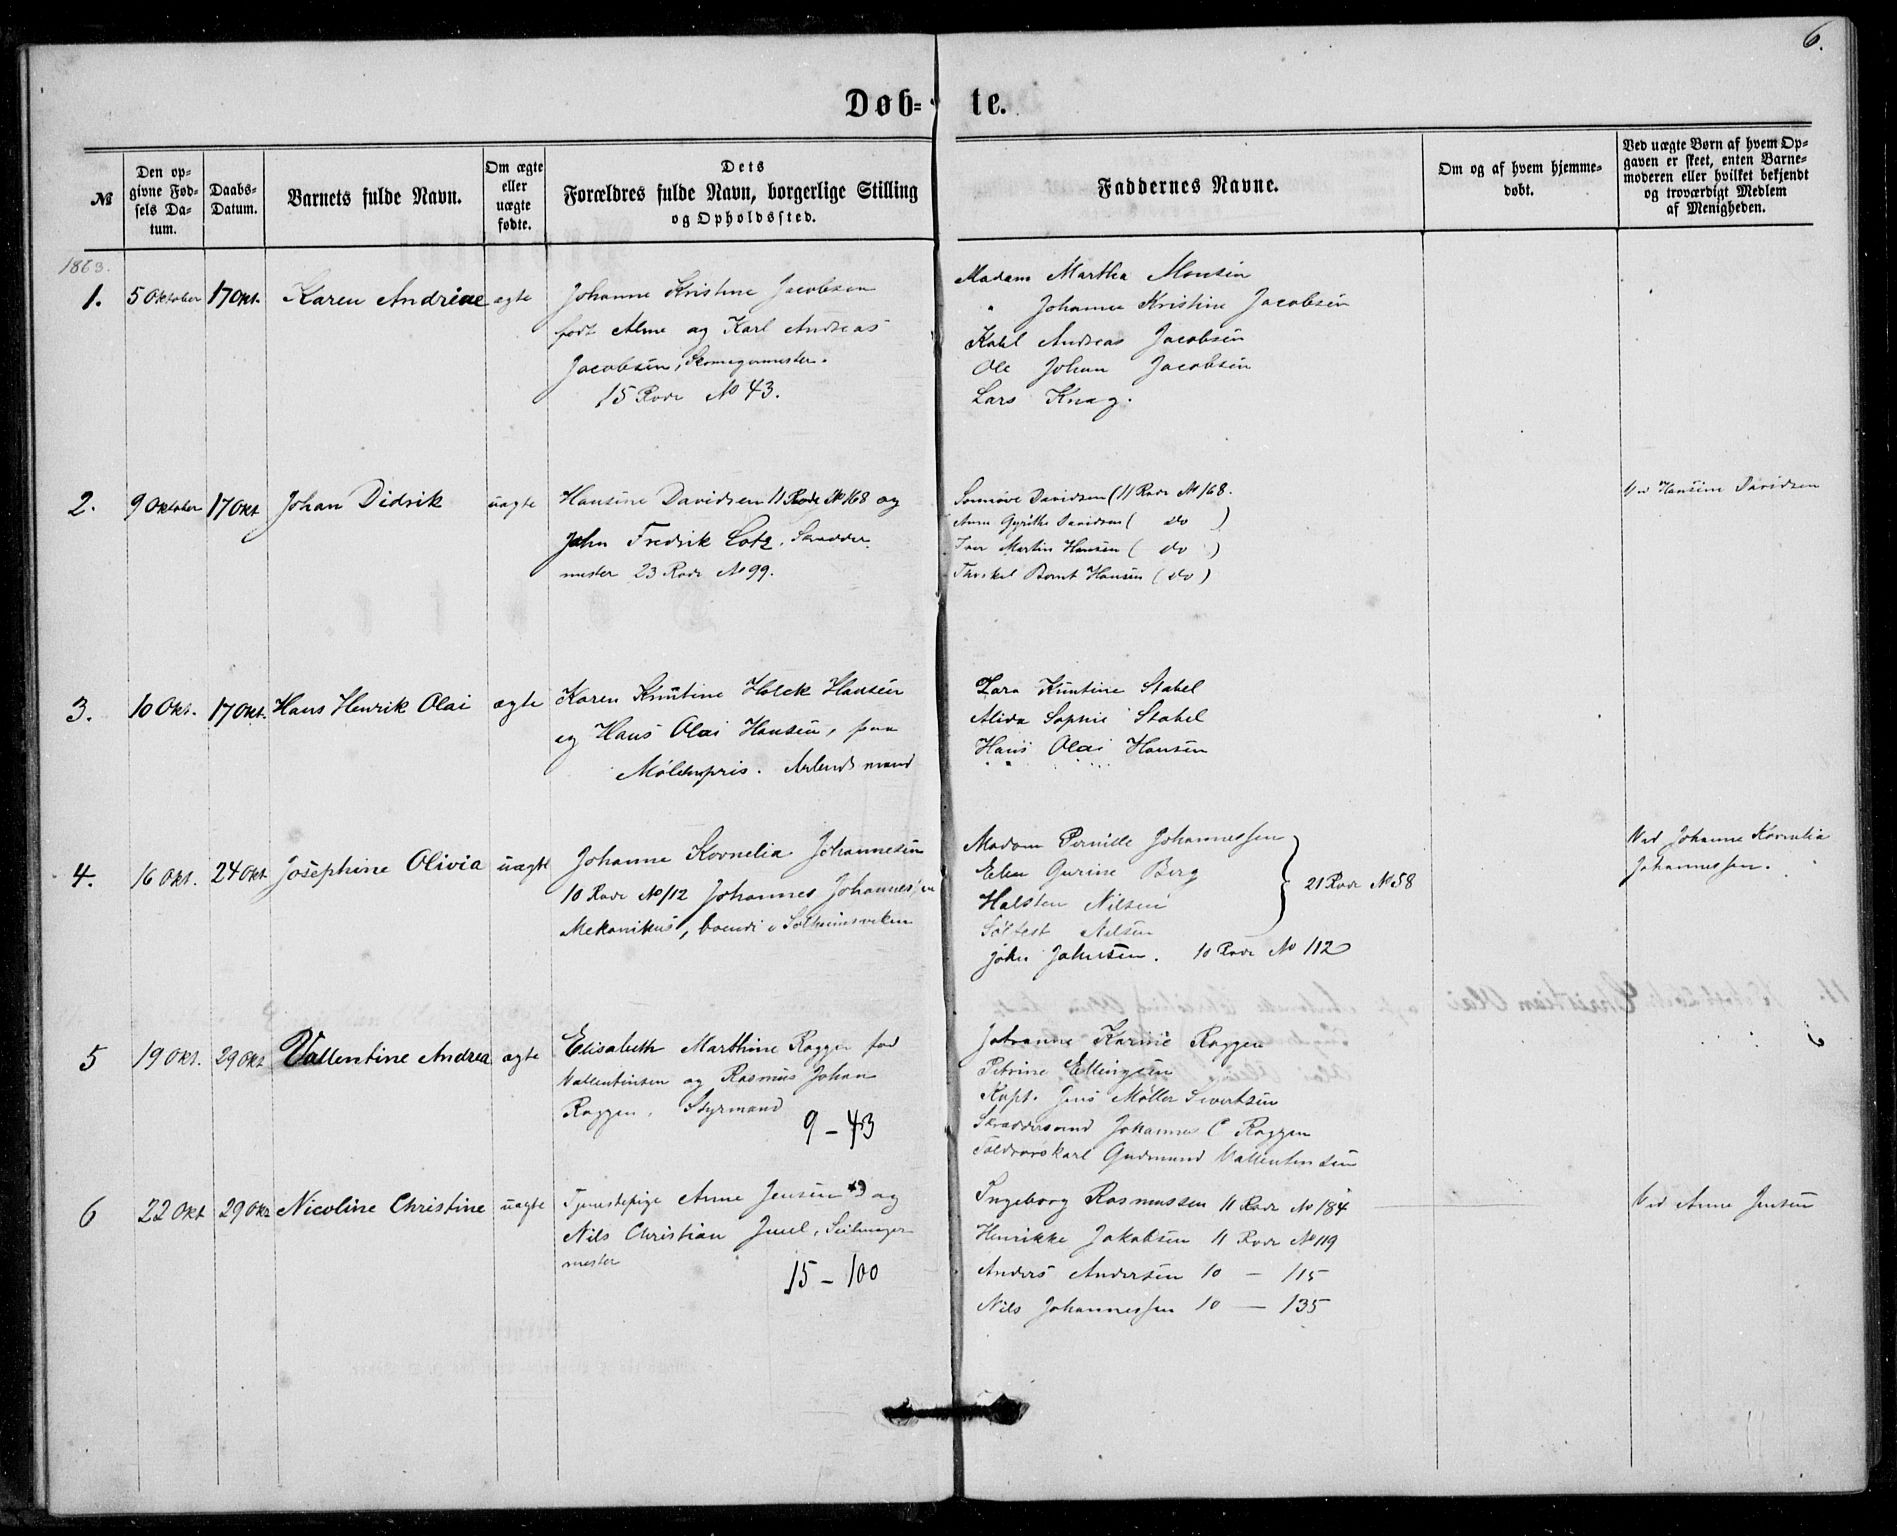 6.
Døb- te.
№
Den opgivne Fødsels Datum.
Daabs-Datum.
Barnets fulde Navn.
Om ægte eller uægte fødte.
Dets Forældres fulde Navn, borgerlige Stilling og Opholdssted.
Faddernes Navne.
Om og af hvem hjemmedøbt.
Ved uægte Børn af hvem Opgaven er skeet, enten Barnemoderen eller hvilket bekjendt og troværdigt Medlem af Menigheden.
1863.
1. 5 Oktober 17 Okt. Karen Andrine ægte
Johanne Kristine Jacobsen
født Alme og Karl Andreas
Jacobsen, Skomagermester.
15 Rode № 43.
Madam Martha Monsen
" Johanne Kristine Jacobsen
Karl Andreas Jacobsen
Ole Johan Jacobsen
Lars Knag.
2. 9 Oktober 17 Okt Johan Didrik uægte
Hansine Davidsen 11 Rode № 168 og
John Fredrik Lotz, Skrædder
mester 23 Rode № 99.
Sønnøve Davidsen (11 Rode № 168.
Anne Gyrithe Davidsen ( do )
Iver Martin Hansen ( do )
Thorkel Bernt Hansen ( do )
Ved Hansine Davidsen
3. 10 Okt. 17 Okt. Hans Henrik Olai ægte
Karen Knutine Holck Hansen
og Hans Olai Hansen, paa
Møhlenpris. Arbeidsmand
Lara Kuntine Stabel
Alida Sophie Stabel
Hans Olai Hansen
4. 16 Okt. 24 Okt Josephine Olivia uægte
Johanne Kornelia Johannesen
10 Rode № 112 Johannes Johannessen
Mekanikus, boende i Solheimsviken
Madam Pernille Johannessen
Elen Gurine Berg
Halsten Nilsen
21 Rode № 58
Nilsen
John Johnsen. 10 Rode № 112
Ved Johanne Kornelia
Johannessen.
5 19 Okt. 29 Okt Vallentine Andrea ægte
Elisabeth Marthine Roggen fød
Vallentinsen og Rasmus Johan
Roggen, Styrmand
9 – 43
Johanne Karine Roggen
Petrine Ellingsen
Kapt. Jens Møller Sivertsen
Skræddersvend Johannes C Roggen
Toldrorskarl Gudmund Vallentinsen
6 22 Okt 29 Okt Nicoline Christine uægte
Tjenestepige Anne Jensen og
Nils Christian Juul, Seilmager
mester
15 – 100
Ingeborg Rasmussen 11 Rode № 184
Henrikke Jakobsen 11 Rode № 119
Anders Andersen 10 — 115
Nils Johannessen 10 — 135
Ved Anne Jensen